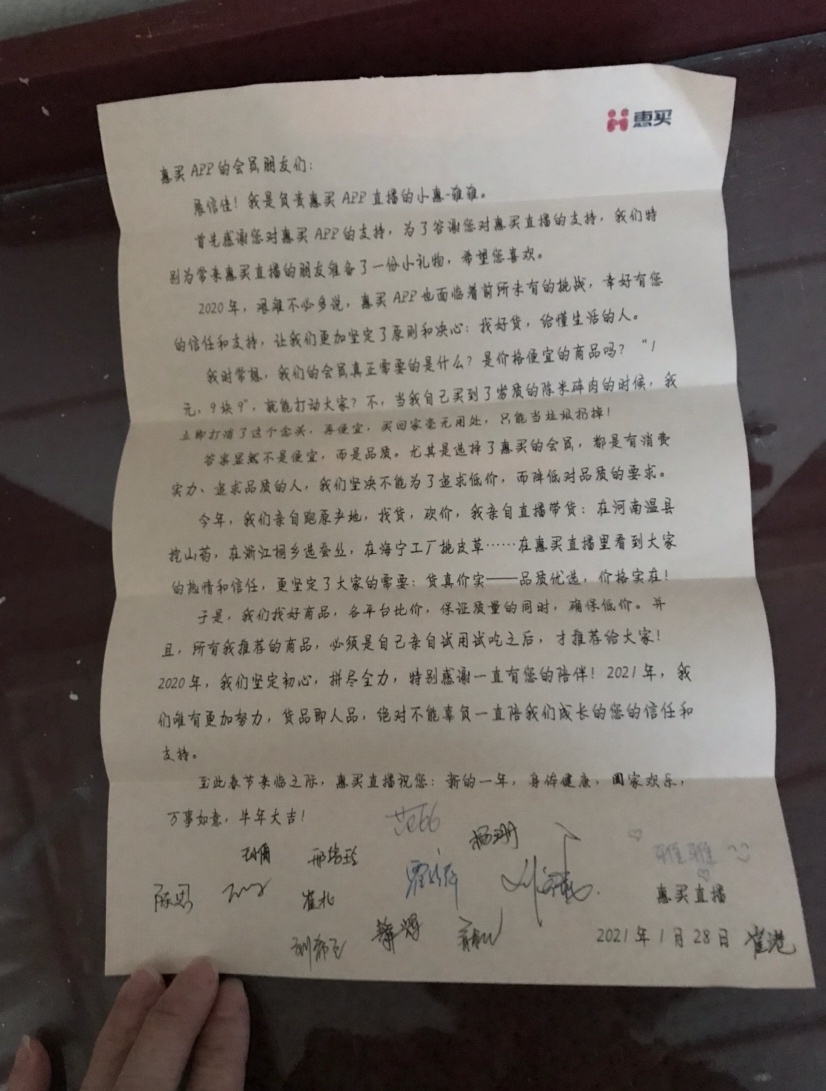 惠买
惠买APP的会员朋友们：
展信佳！我是负责惠买APP直播的小惠-雅雅。
首先感谢您对惠买APP的支持，为了答谢您对惠买直播的支持，我们特
别为常来惠买直播的朋友准备了一份小礼物，希望您喜欢。
2020年，艰难不必多说，惠买APP也面临着前所未有的挑战，幸好有您
的信任和支持，让我们更加坚定了原则和决心：找好货，给懂生活的人。
我时常想，我们的会员真正需要的是什么？是价格便宜的商品吗？“1
元，9块9”，就能打动大家？不，当我自己买到了劣质的陈米碎肉的时候，我
立即打消了这个念头，再便宜，买回家毫无用处，只能当垃圾扔掉！
答案显然不是便宜，而是品质。尤其是选择了惠买的会员，都是有消费
实力、追求品质的人，我们坚决不能为了追求低价，而降低对品质的要求。
今年，我们亲自跑原产地，找货，砍价，我亲自直播带货：在河南温县
挖山药，在浙江桐乡选蚕丝，在海宁工厂挑皮草……在惠买直播里看到大家
的热情和信任，更坚定了大家的需要：货真价实——品质优选，价格实在！
于是，我们找好商品，各平台比价，保证质量的同时，确保低价。并
且，所有我推荐的商品，必须是自己亲自试用试吃之后，才推荐给大家！
2020年，我们坚定初心，拼尽全力，特别感谢一直有您的陪伴！2021年，我
们唯有更加努力，货品即人品，绝对不能辜负一直陪我们成长的您的信任和
支持。
至此春节来临之际，惠买直播祝您：新的一年，身体健康，阖家欢乐，
万事如意，牛年大吉！
雅雅
陈思
惠买直播
2021年1月28日